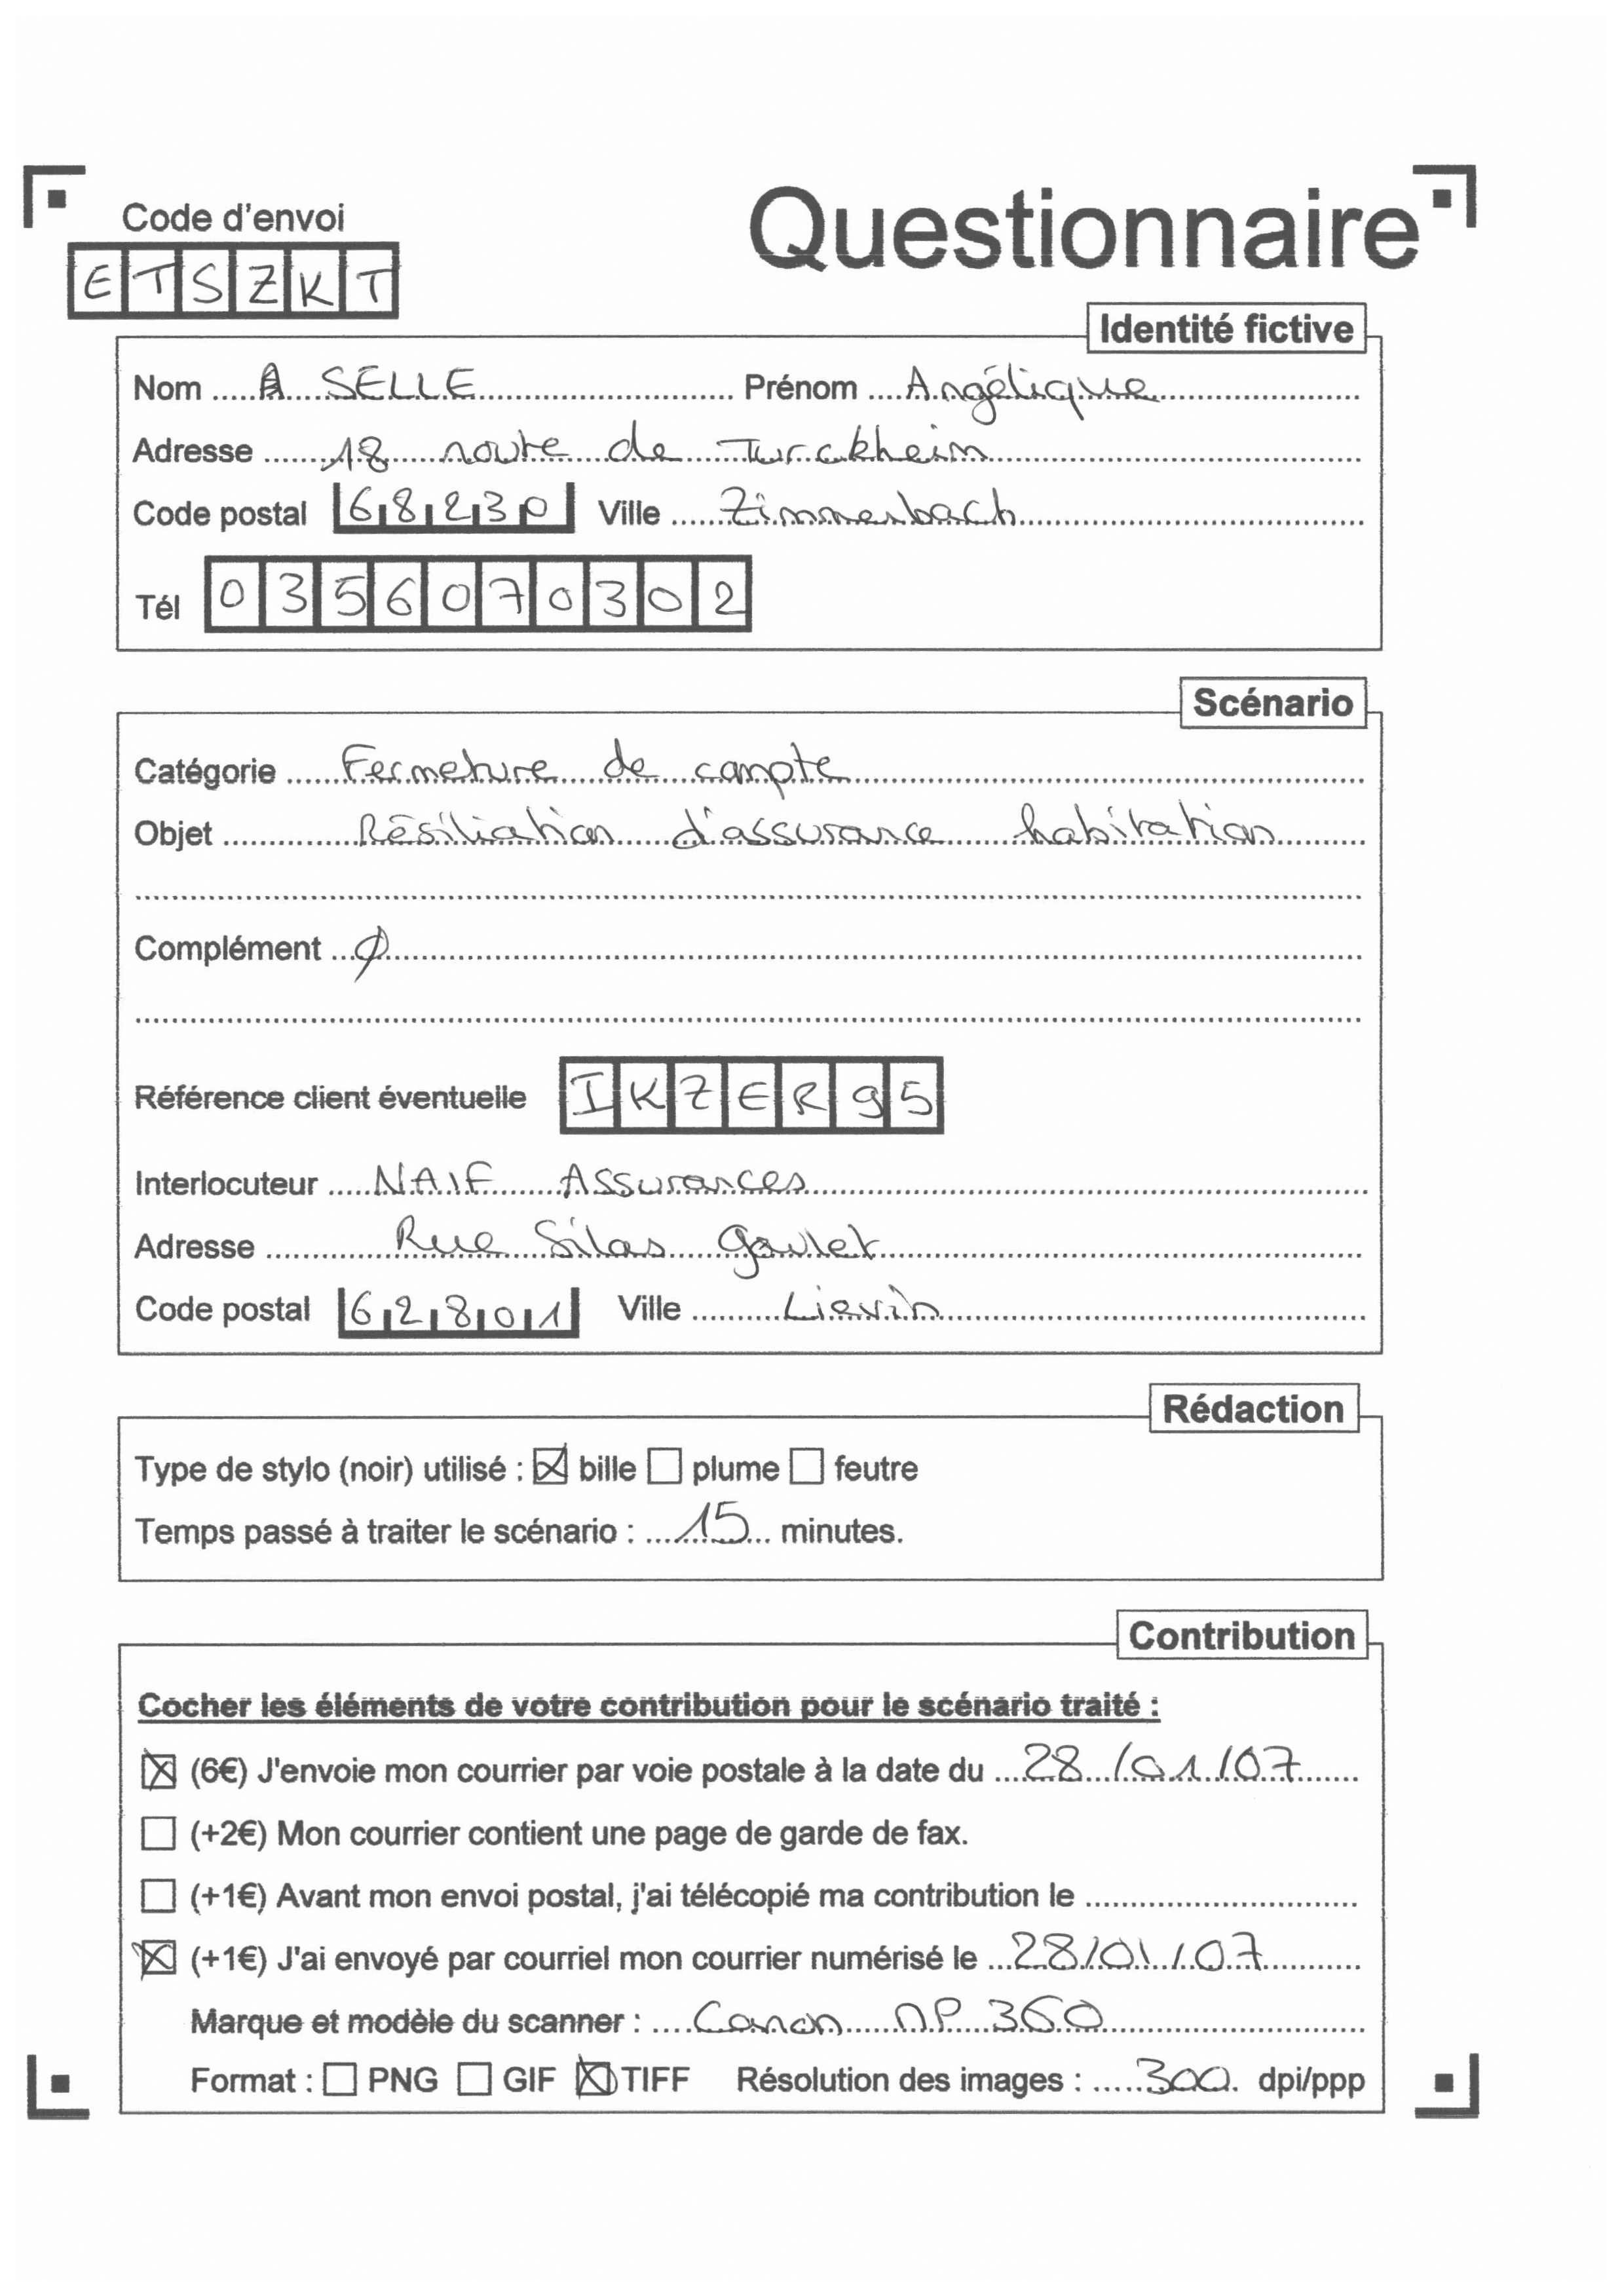 Code d'envoi
Questionnaire
ETSZKT
Identité fictive
Nom A SELLE Prénom Angélique
Adresse 18 route de Turckheim
Code postal 68230 Ville Zimmerbach
Tél 0356070302
Scénario
Catégorie Fermeture de compte
Objet Résiliation d'assurance habitation
Complément ∅
Référence client éventuelle IKZER95
Interlocuteur NAIF Assurances
Adresse Rue Silas Goulet
Code postal 62801 Ville Lievin
Rédaction
Type de stylo (noir) utilisé : ☒ bille ☐ plume ☐ feutre
Temps passé à traiter le scénario : 15 minutes.
Contribution
Cocher les éléments de votre contribution pour le scénario traité :
☒ (6€) J'envoie mon courrier par voie postale à la date du 28/01/07
☐ (+2€) Mon courrier contient une page de garde de fax.
☐ (+1€) Avant mon envoi postal, j'ai télécopié ma contribution le
☒ (+1€) J'ai envoyé par courriel mon courrier numérisé le 28/01/07
Marque et modèle du scanner : Canon MP 360
Format : ☐ PNG ☐ GIF ☒ TIFF Résolution des images : 300 dpi/ppp